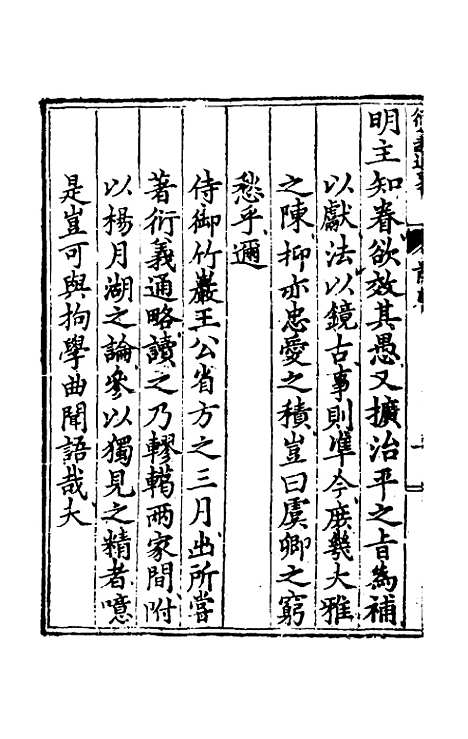 明主知眷欲效其愚又擴治平之旨為補
以獻法以鏡古事則準今庶幾大雅
之陳抑亦忠愛之積豈曰虞卿之窮
愁乎邇
侍御竹巖王公省方之三月出所嘗
著衍義通略讀之乃轇轕兩家間附
以楊月湖之論參以獨見之精者噫
是豈可與拘學曲聞語哉夫